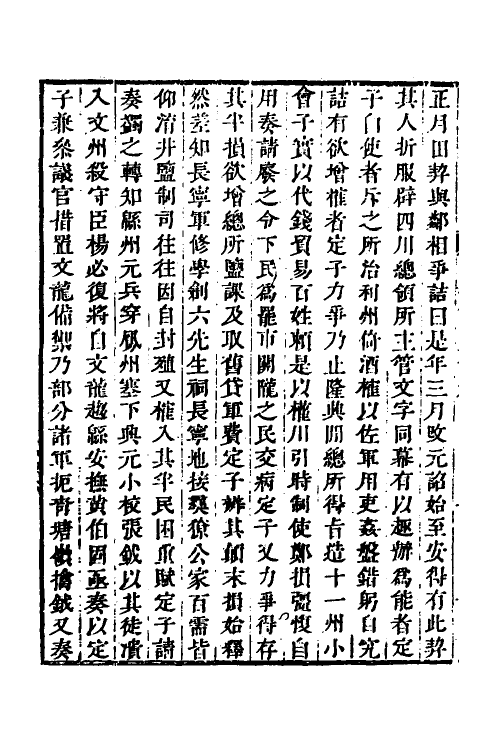 正月田契與鄰相爭詰曰是年三月改元詔始至安得有此契
其人折服辟四川總領所主管文字同幕有以趣辦爲能者定
子白使者斥之所治利州倚酒榷以佐軍用吏姦盤錯躬自究
詰有欲增榷者定子力爭乃止隆興間總所得旨造十一州小
會子實以代錢貿易百姓賴是以權川引時制使鄭損彊愎自
用奏請廢之令下民爲罷市關隴之民交病定子又力爭得存
其半損欲增總所鹽課及取舊貸軍費定子辨其顛末損始釋
然差知長寧軍修學創六先生祠長寧地接夷獠公家百需皆
仰淯井鹽制司往往因自封殖又榷入其半民困重賦定子請
奏蠲之轉知綿州元兵穿鳳州塞下興元小校張鉞以其徒潰
入文州殺守臣楊必復將自文龍趨綿安撫黃伯固亟奏以定
子兼參議官措置文龍備禦乃部分諸軍扼青塘嶺擒鉞又奏